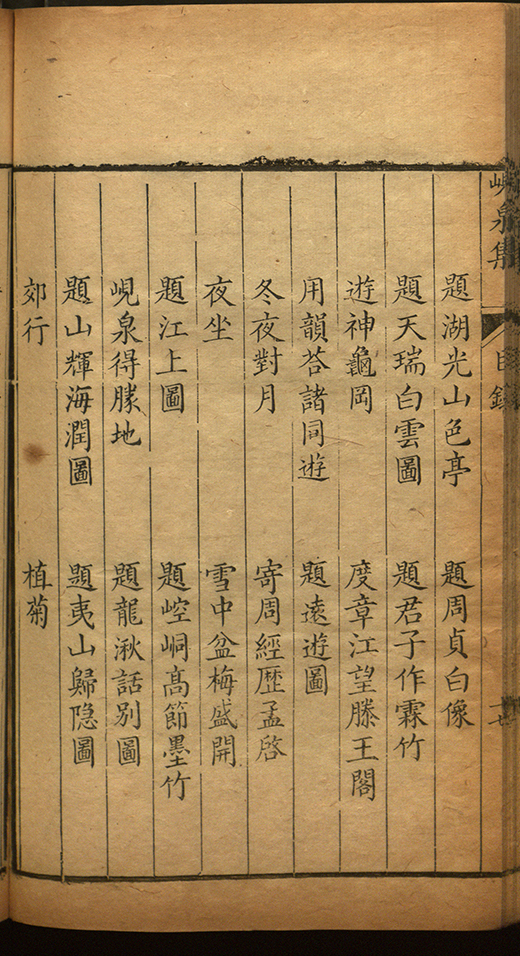 峴泉集 目錄
題湖光山色亭 題周貞白像
題天瑞白雲圖 題君子作霖竹
遊神龜岡 度章江望滕王閣
用韻荅諸同遊 題遠遊圖
冬夜對月 寄周經歷孟啓
夜坐 雪中盆梅盛開
題江上圖 題崆峒高節墨竹
峴泉得勝地 題龍湫話別圖
題山輝海潤圖 題夷山歸隐圖
郊行 植菊